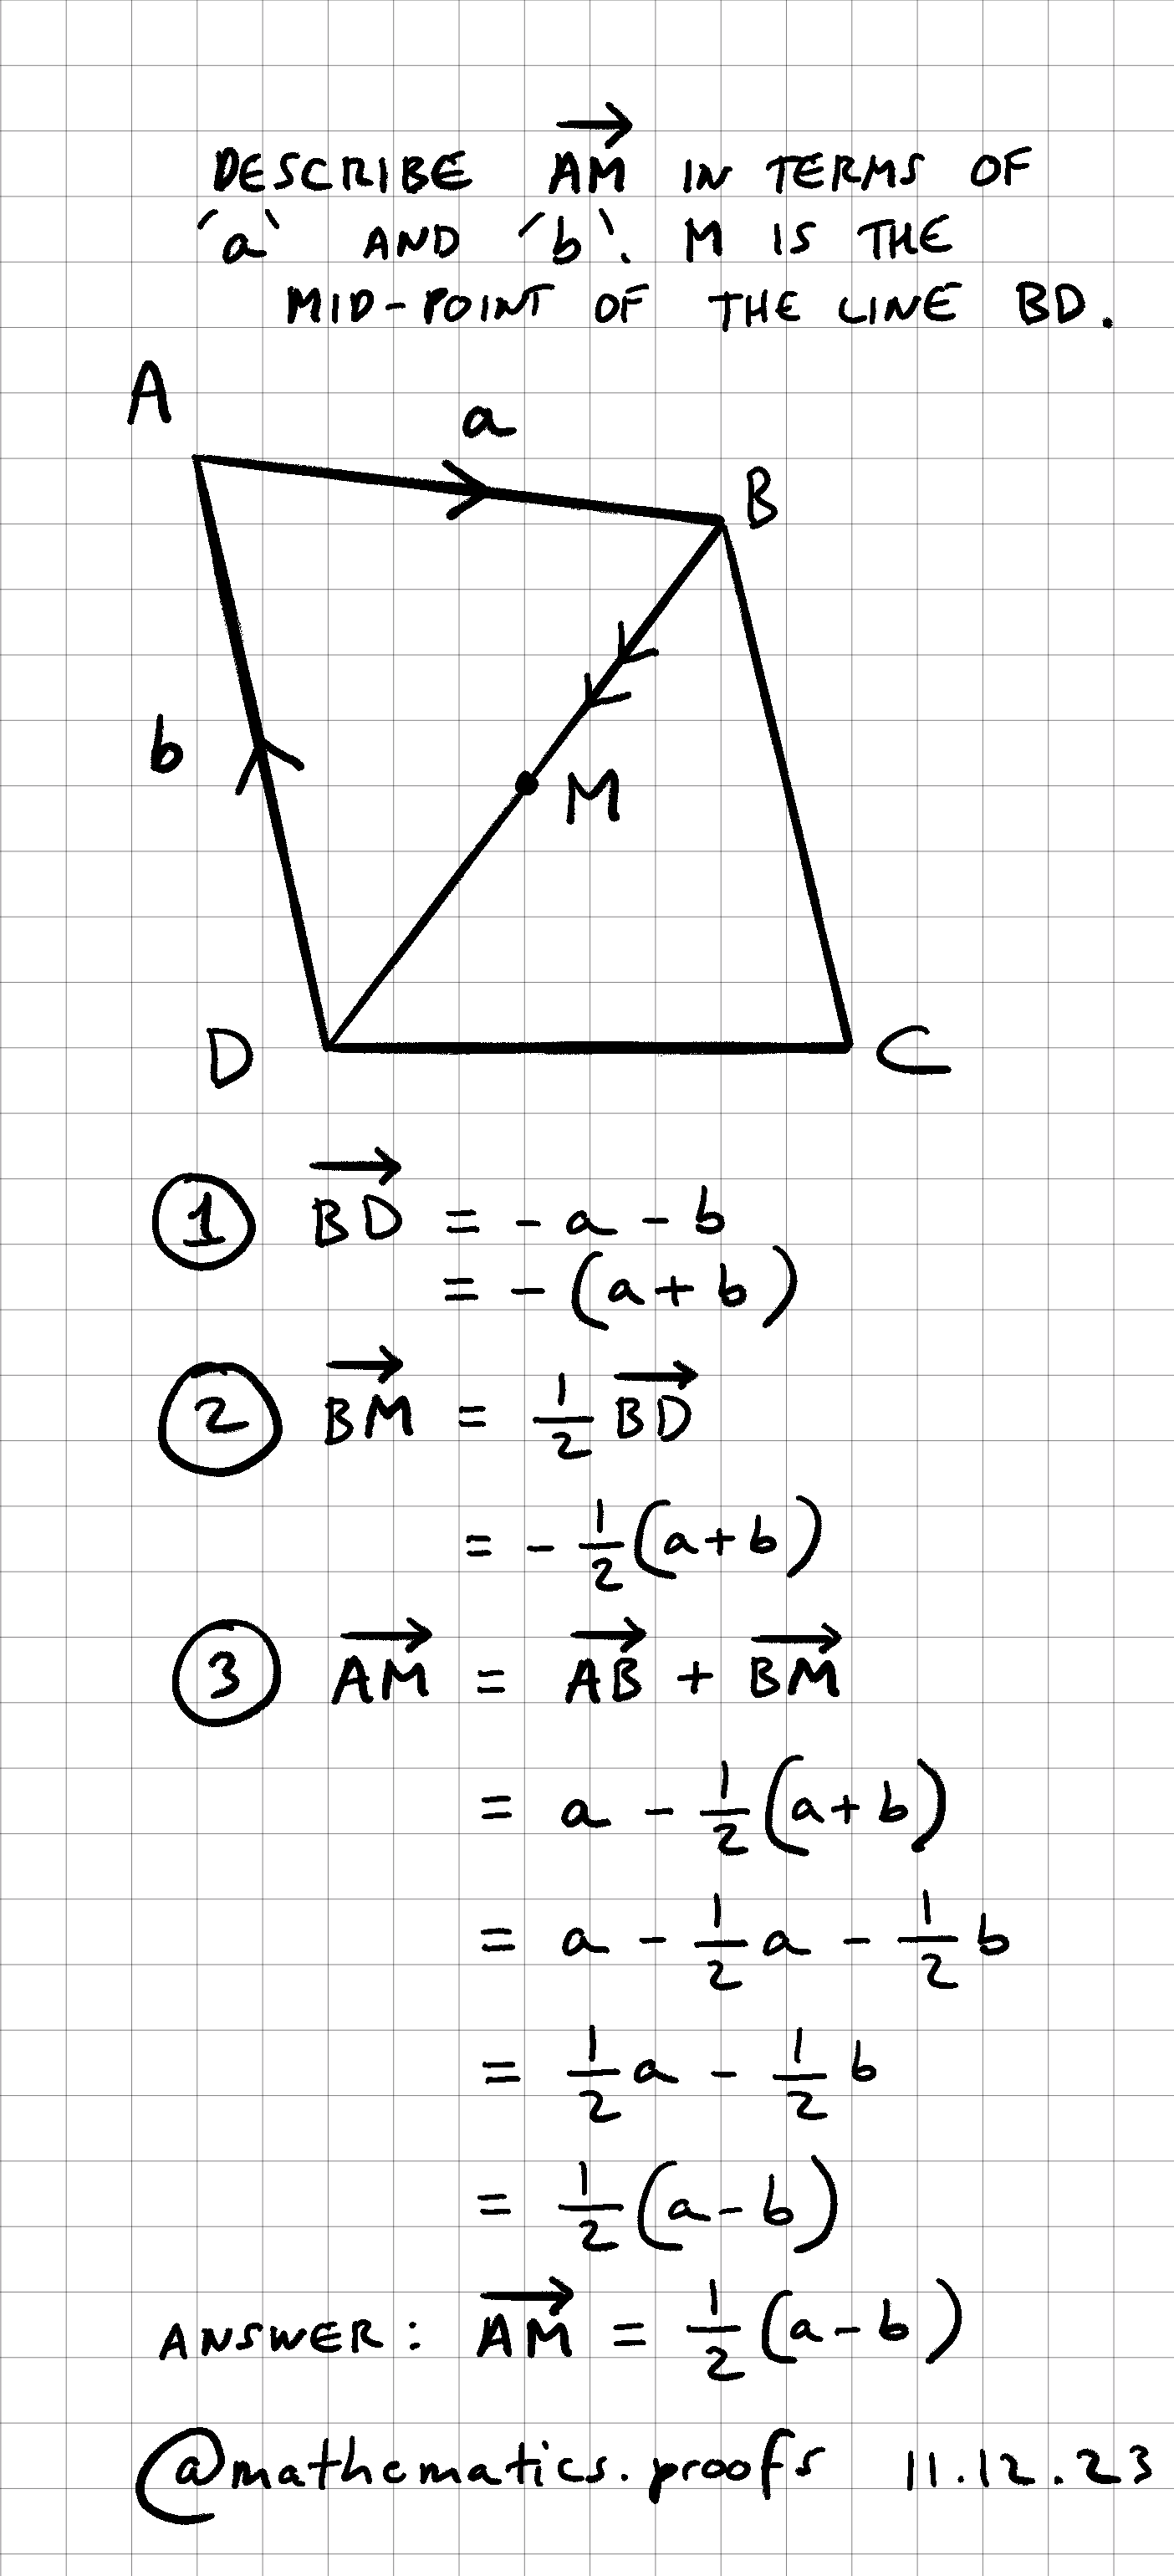 DESCRIBE $\overrightarrow{AM}$ IN TERMS OF
'a' AND 'b'. M IS THE
MID-POINT OF THE LINE BD.
A
a
B
b
M
D
C
① $\overrightarrow{BD}$ = - a - b
= - (a + b)
② $\overrightarrow{BM}$ = $\frac{1}{2}\overrightarrow{BD}$
= - $\frac{1}{2}$(a + b)
③ $\overrightarrow{AM}$ = $\overrightarrow{AB}$ + $\overrightarrow{BM}$
= a - $\frac{1}{2}$(a + b)
= a - $\frac{1}{2}$a - $\frac{1}{2}$b
= $\frac{1}{2}$a - $\frac{1}{2}$b
= $\frac{1}{2}$(a - b)
ANSWER: $\overrightarrow{AM}$ = $\frac{1}{2}$(a - b)
@mathematics.proofs 11.12.23